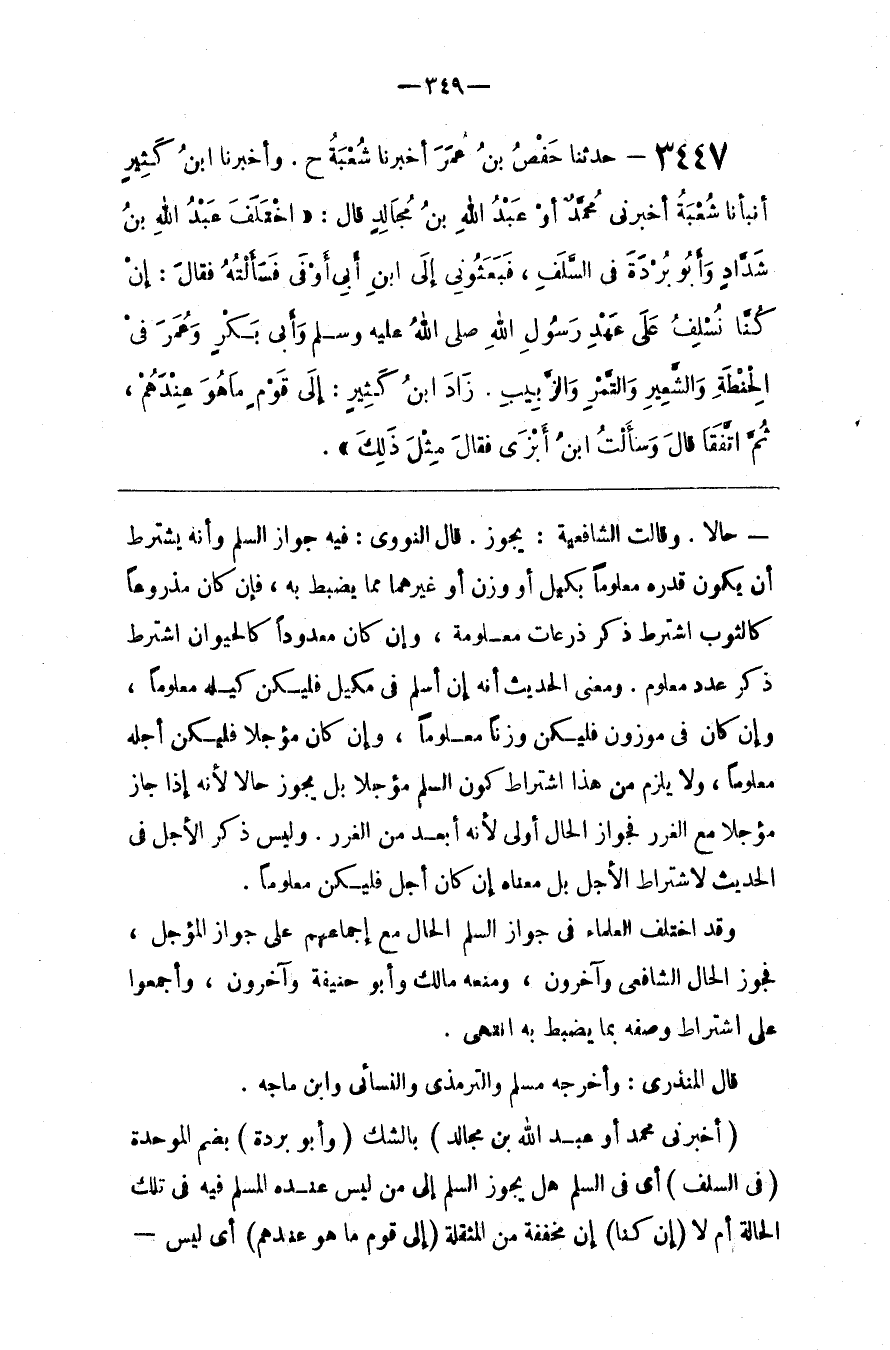 —٣٤٩—
٣٤٤٧ — حدثنا حَفْصُ بنُ عُمَرَ أخبرنا شُعْبَةُ ح . وأخبرنا ابنُ كَثِيرٍ
أنبأنا شُعْبَةُ أخبرنى مُحمَّدٌ أوْ عَبْدُ اللهِ بنُ مُجَالِدٍ قال : « اخْتَلَفَ عَبْدُ اللهِ بنُ
شَدَّادٍ وَأَبُو بُرْدَةَ فى السَّلَفِ ، فَبَعَثُونِي إلَى ابنِ أَبِي أَوْفَى فَسَأَلْتُهُ فقالَ : إنْ
كُنَّا نُسْلِفُ عَلَى عَهْدِ رَسُولِ اللهِ صلى اللهُ عليه وسلم وَأَبى بَكْرٍ وَعُمَرَ فىْ
الْحِنْطَةِ وَالشَّعِيرِ وَالتَّمْرِ وَالزَّبِيبِ . زَادَ ابنُ كَثِيرٍ : إلَى قَوْمٍ مَاهُوَ عِنْدَهُمْ ،
ثُمَّ اتَّفَقَا قالَ وَسأَلْتُ ابنَ أَبْزَى فقالَ مِثْلَ ذَلِكَ » .
— حالا . وقالت الشافعية : يجوز . قال النووى : فيه جواز السلم وأنه يشترط
أن يكون قدره معلوماً بكيل أو وزن أو غيرهما مما يضبط به ، فإن كان مذروعاً
كالثوب اشترط ذكر ذرعات معلومة ، وإن كان معدوداً كالحيوان اشترط
ذكر عدد معلوم . ومعنى الحديث أنه إن أسلم فى مكيل فليكن كيله معلوماً ،
وإن كان فى موزون فليكن وزناً معلوماً ، وإن كان مؤجلا فليكن أجله
معلوماً ، ولا يلزم من هذا اشتراط كون السلم مؤجلا بل يجوز حالا لأنه إذا جاز
مؤجلا مع الغرر فجواز الحال أولى لأنه أبعد من الغرر . وليس ذكر الأجل فى
الحديث لاشتراط الأجل بل معناه إن كان أجل فليكن معلوماً .
وقد اختلف العلماء فى جواز السلم الحال مع إجماعهم على جواز المؤجل ،
فجوز الحال الشافعى وآخرون ، ومنعه مالك وأبو حنيفة وآخرون ، وأجمعوا
على اشتراط وصفه بما يضبط به انتهى .
قال المنذرى : وأخرجه مسلم والترمذى والنسائى وابن ماجه .
( أخبرنى محمد أو عبد الله بن مجالد ) بالشك ( وأبو بردة ) بضم الموحدة
( فى السلف ) أى فى السلم هل يجوز السلم إلى من ليس عنده المسلم فيه فى تلك
الحالة أم لا (إن كنا) إن مخففة من المثقلة (إلى قوم ما هو عندهم) أى ليس —